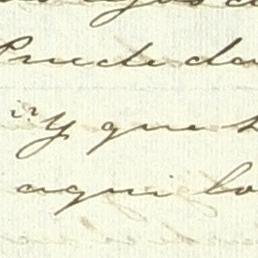 Puede da
¿Y que
aqui lo